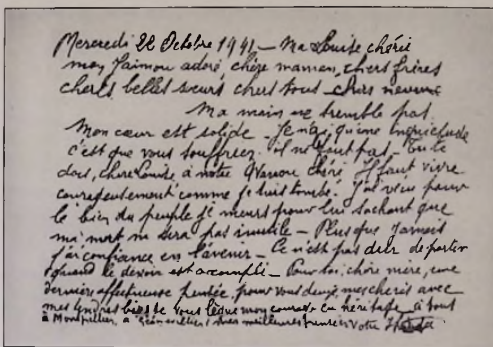 Mercredi 22 Octobre 1941 – Ma Louise chérie
mon adoré, chère maman, chers frères
chères belles sœurs, chers tous chers neveux
Ma main ne tremble pas.
Mon cœur est solide – Je n'ai qu'une inquiétude
c'est que vous souffriez. Il ne faut pas – Tu te
dois, chère Louise à notre chéri. Il faut vivre
courageusement comme je suis tombé. J'ai vécu pour
le bien du peuple je meurs pour lui sachant que
ma mort ne sera pas inutile – Plus que jamais
j'ai confiance en l'avenir – Ce n'est pas dur de partir
quand le devoir est accompli – Pour toi, chère mère, une
dernière affectueuse pensée, pour vous deux, mes chéris avec
mes tendres je vous lègue mon courage en héritage à tous
à Montpellier, à mes meilleures pensées votre